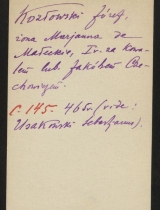 Kozłowski Józef,
żona Marjanna de
Małeckie, Iv. za Kowa-
lem lub. Jakóbem Cze-
chowiczem
C. 145. 465v. (vide:
Usakowski Sebastjanus).